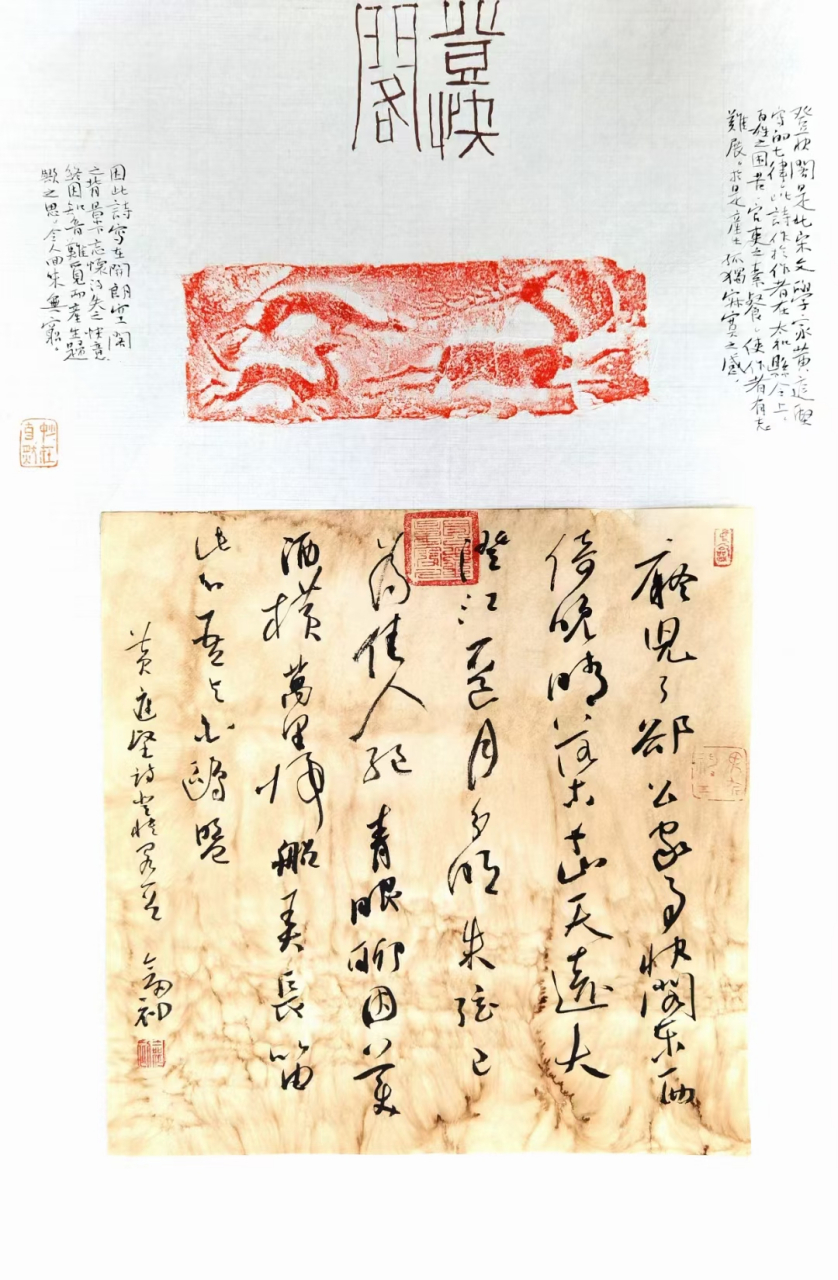 登快
閣
登快閣是北宋文學家黃庭堅
守的七律。此詩作於作者在太和縣令上，
百姓之困苦，官吏之素餐，使作者有志
難展。於是產生孤獨寂寞之感。
因此詩寫在開朗空闊
之背景下忘懷得失之快意
終因知音難覓而產生歸
歟之思。令人回味無窮。
癡兒了卻公家事快閣東西
倚晚晴落木千山天遠大
澄江一道月分明朱弦已
為佳人絕青眼聊因美
酒橫萬里歸船弄長笛
此心吾与白鷗盟
黃庭堅詩登快閣一首 初